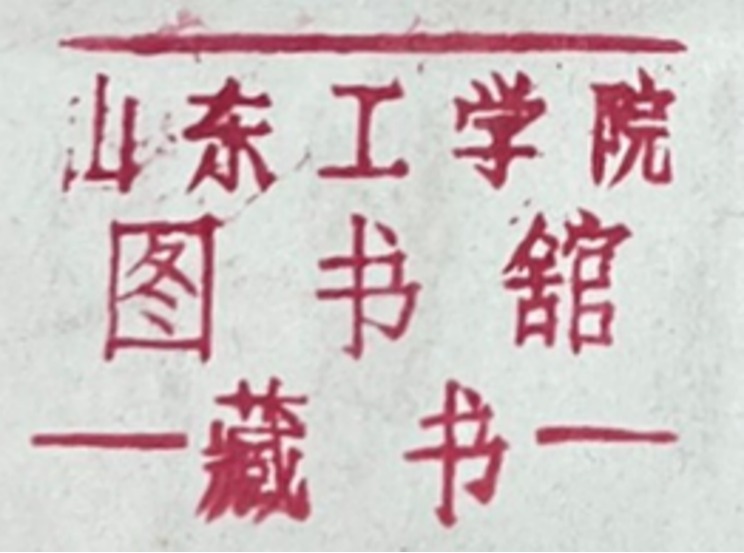 山东工学院
图书舘
藏书